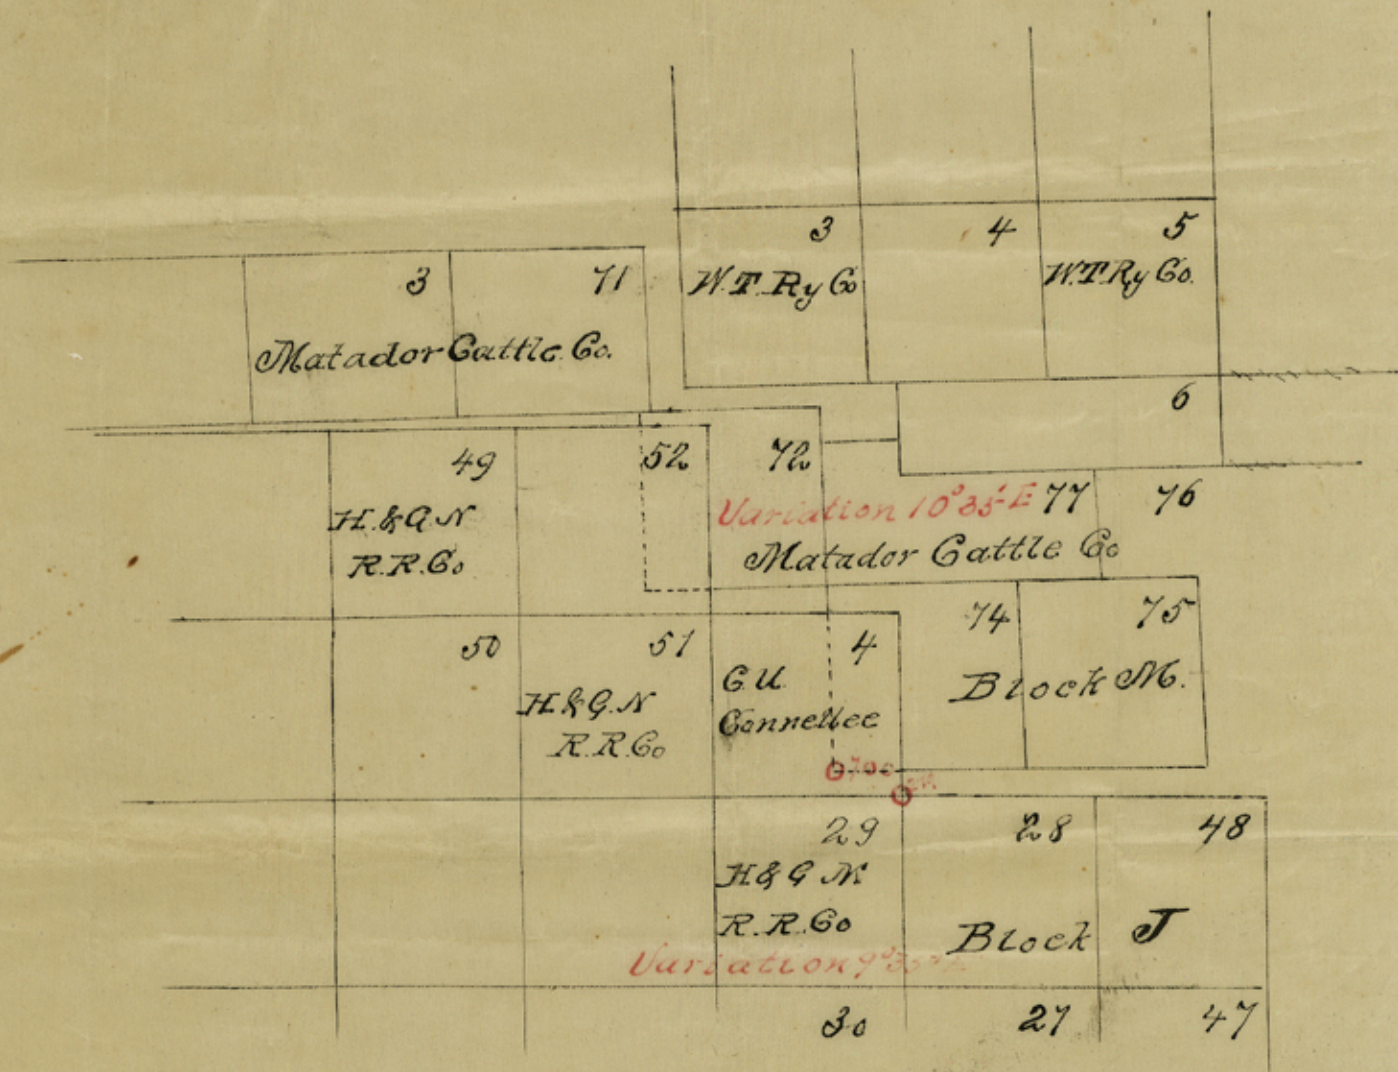 3 4 5
W.T. Ry Co W.T. Ry Co.
3 71
Matador Cattle Co.
6
49 52 72
H.&G.N
R.R.Co
Variation 10° 35' E 77 76
Matador Cattle Co
74 75
50 51 4
H&G.N
R.R.Co
C.U.
Connellee
Block M.
700
29 28 48
H&G N
R.R.Co
Block J
Variation 9°
30 27 47